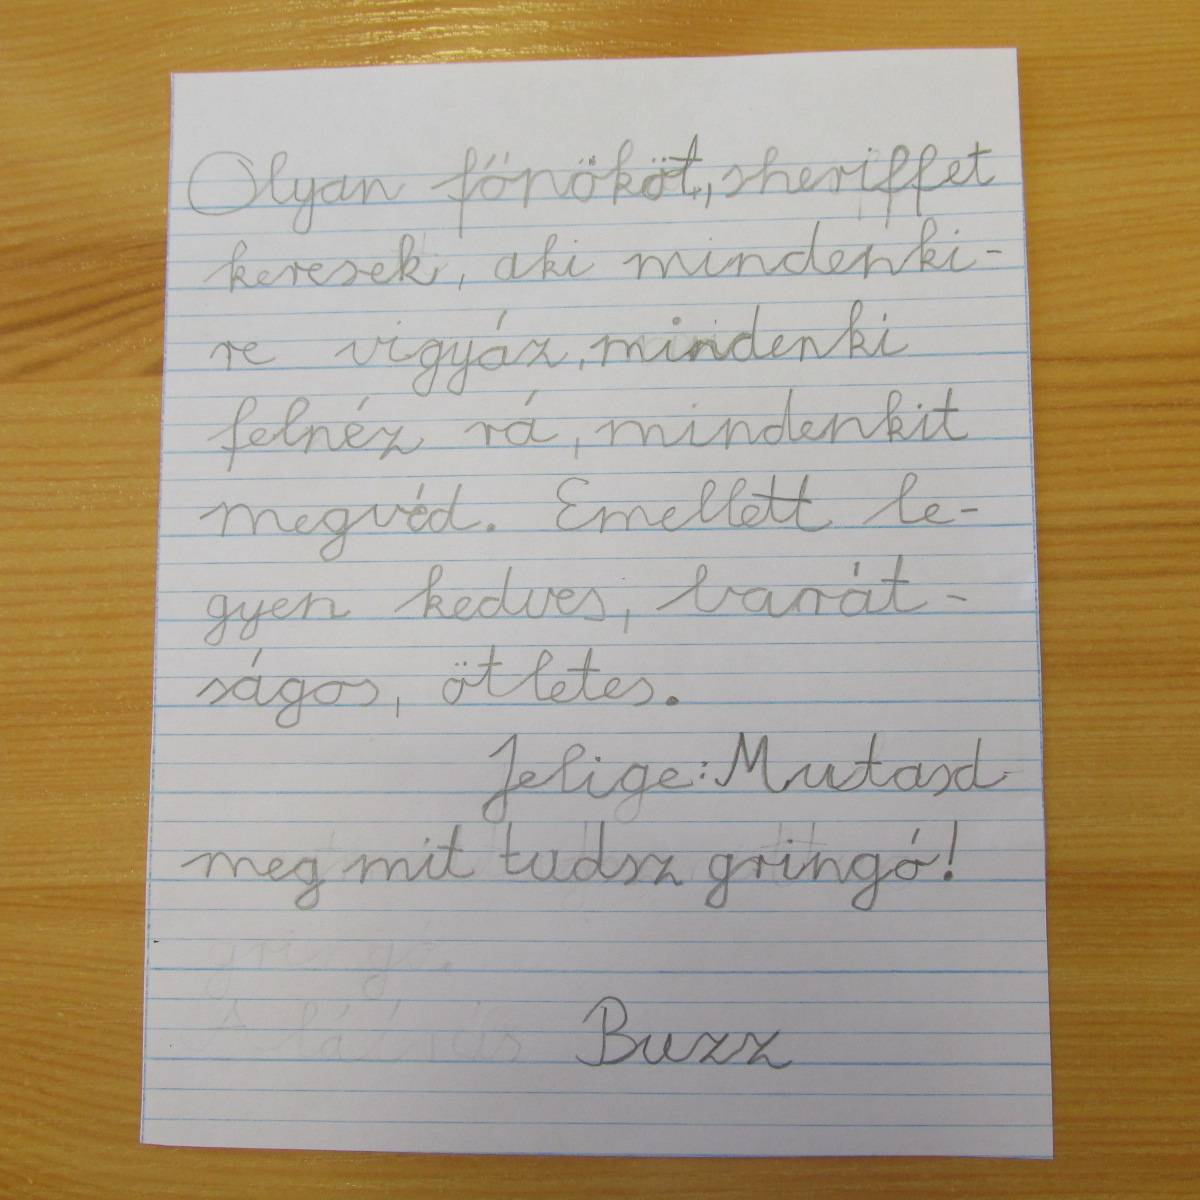 Olyan főnököt, sheriffet
keresek, aki mindenki-
re vigyáz, mindenki
felnéz rá, mindenkit
megvéd. Emellett le-
gyen kedves, barát-
ságos, ötletes.
Jelige: Mutasd
meg mit tudsz gringó!
gringó.
Aláírás
Buzz